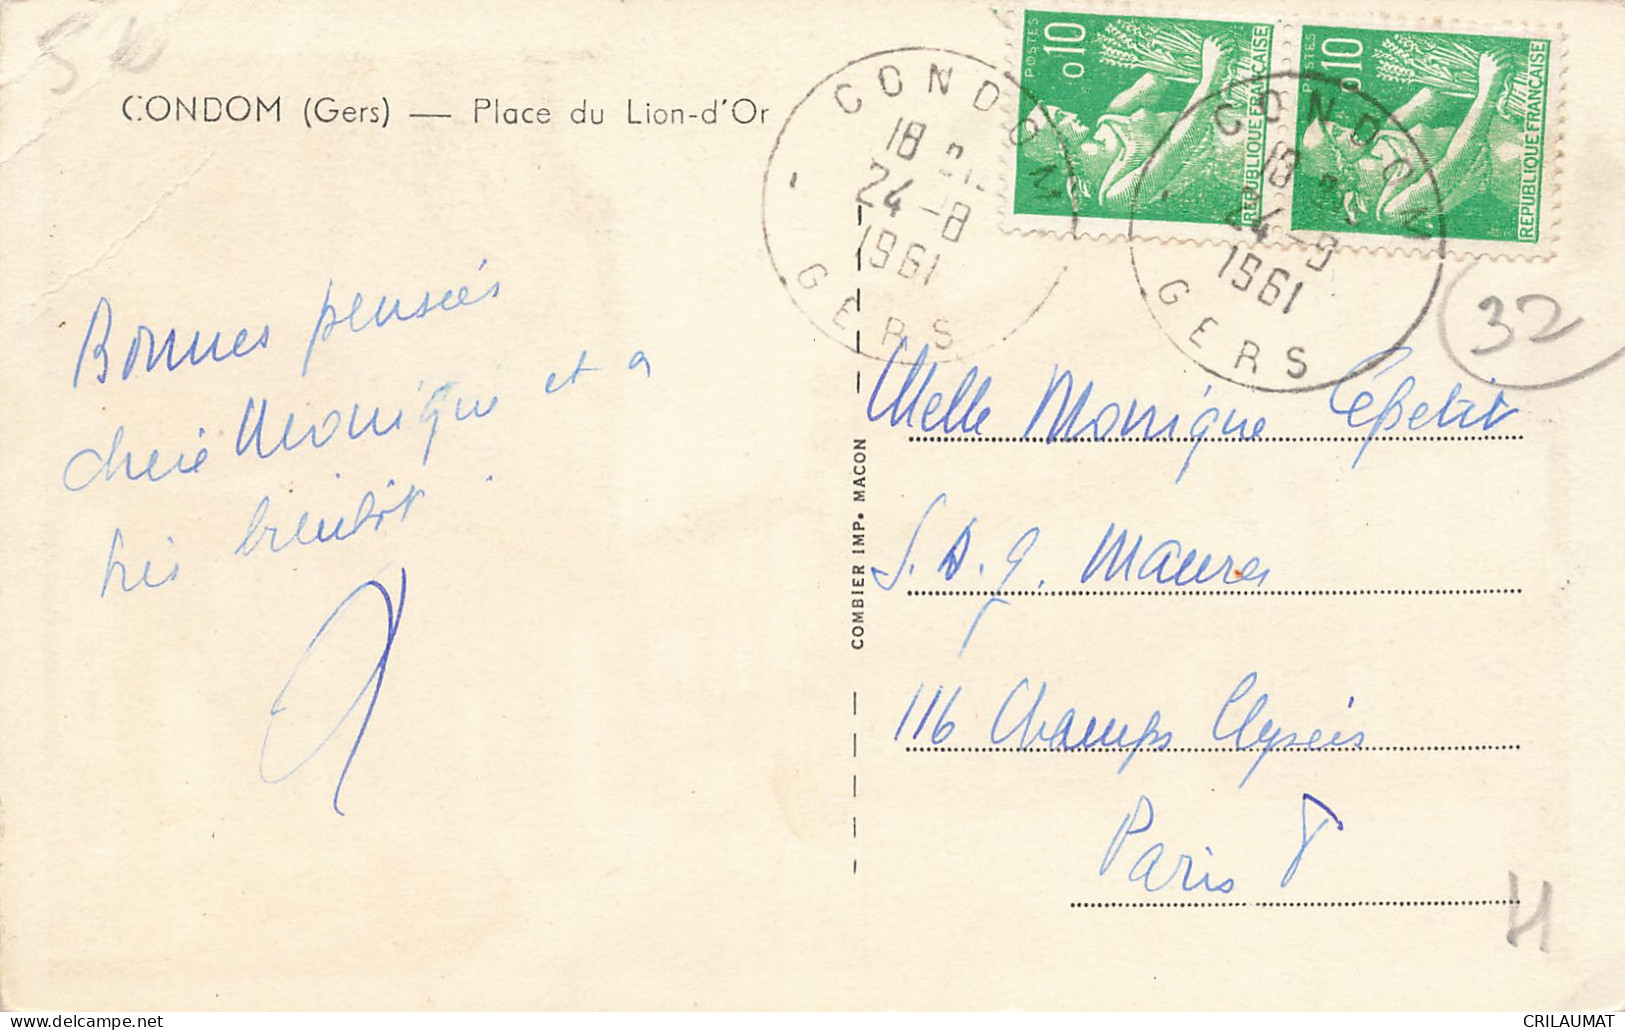 CONDOM (Gers) — Place du Lion-d'Or
Bonnes pensées
chère Monique et à
très bientôt.
COMBIER IMP. MACON
POSTES
0,10
REPUBLIQUE FRANÇAISE
POSTES
0,10
REPUBLIQUE FRANÇAISE
CONDOM
18
24-8
1961
GERS
CONDOM
18
24-8
1961
GERS
32
Melle Monique Lepetit
S.D.G. Maurer
116 Champs Elysées
Paris 8
H
CRILAUMAT